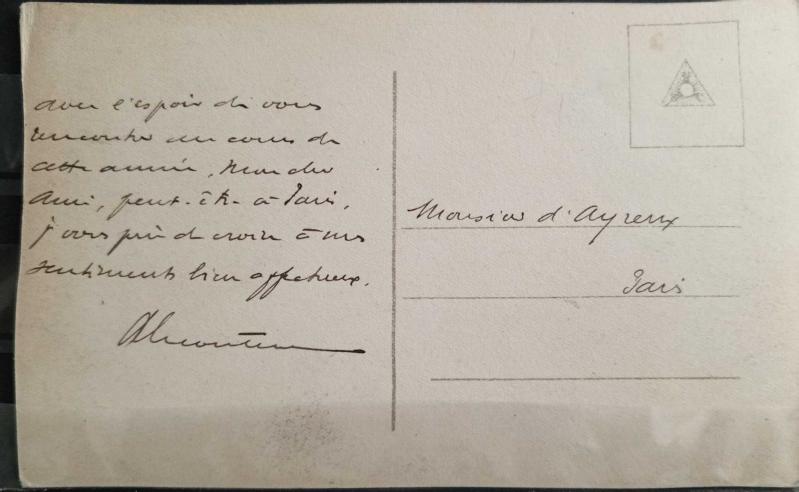 avec l'espoir de vous
rencontrer au cours de
cette année, mon cher
Ami, peut-être à Paris,
je vous prie de croire à mes
sentiments bien affectueux.
Monsieur d'Ayreux
Paris